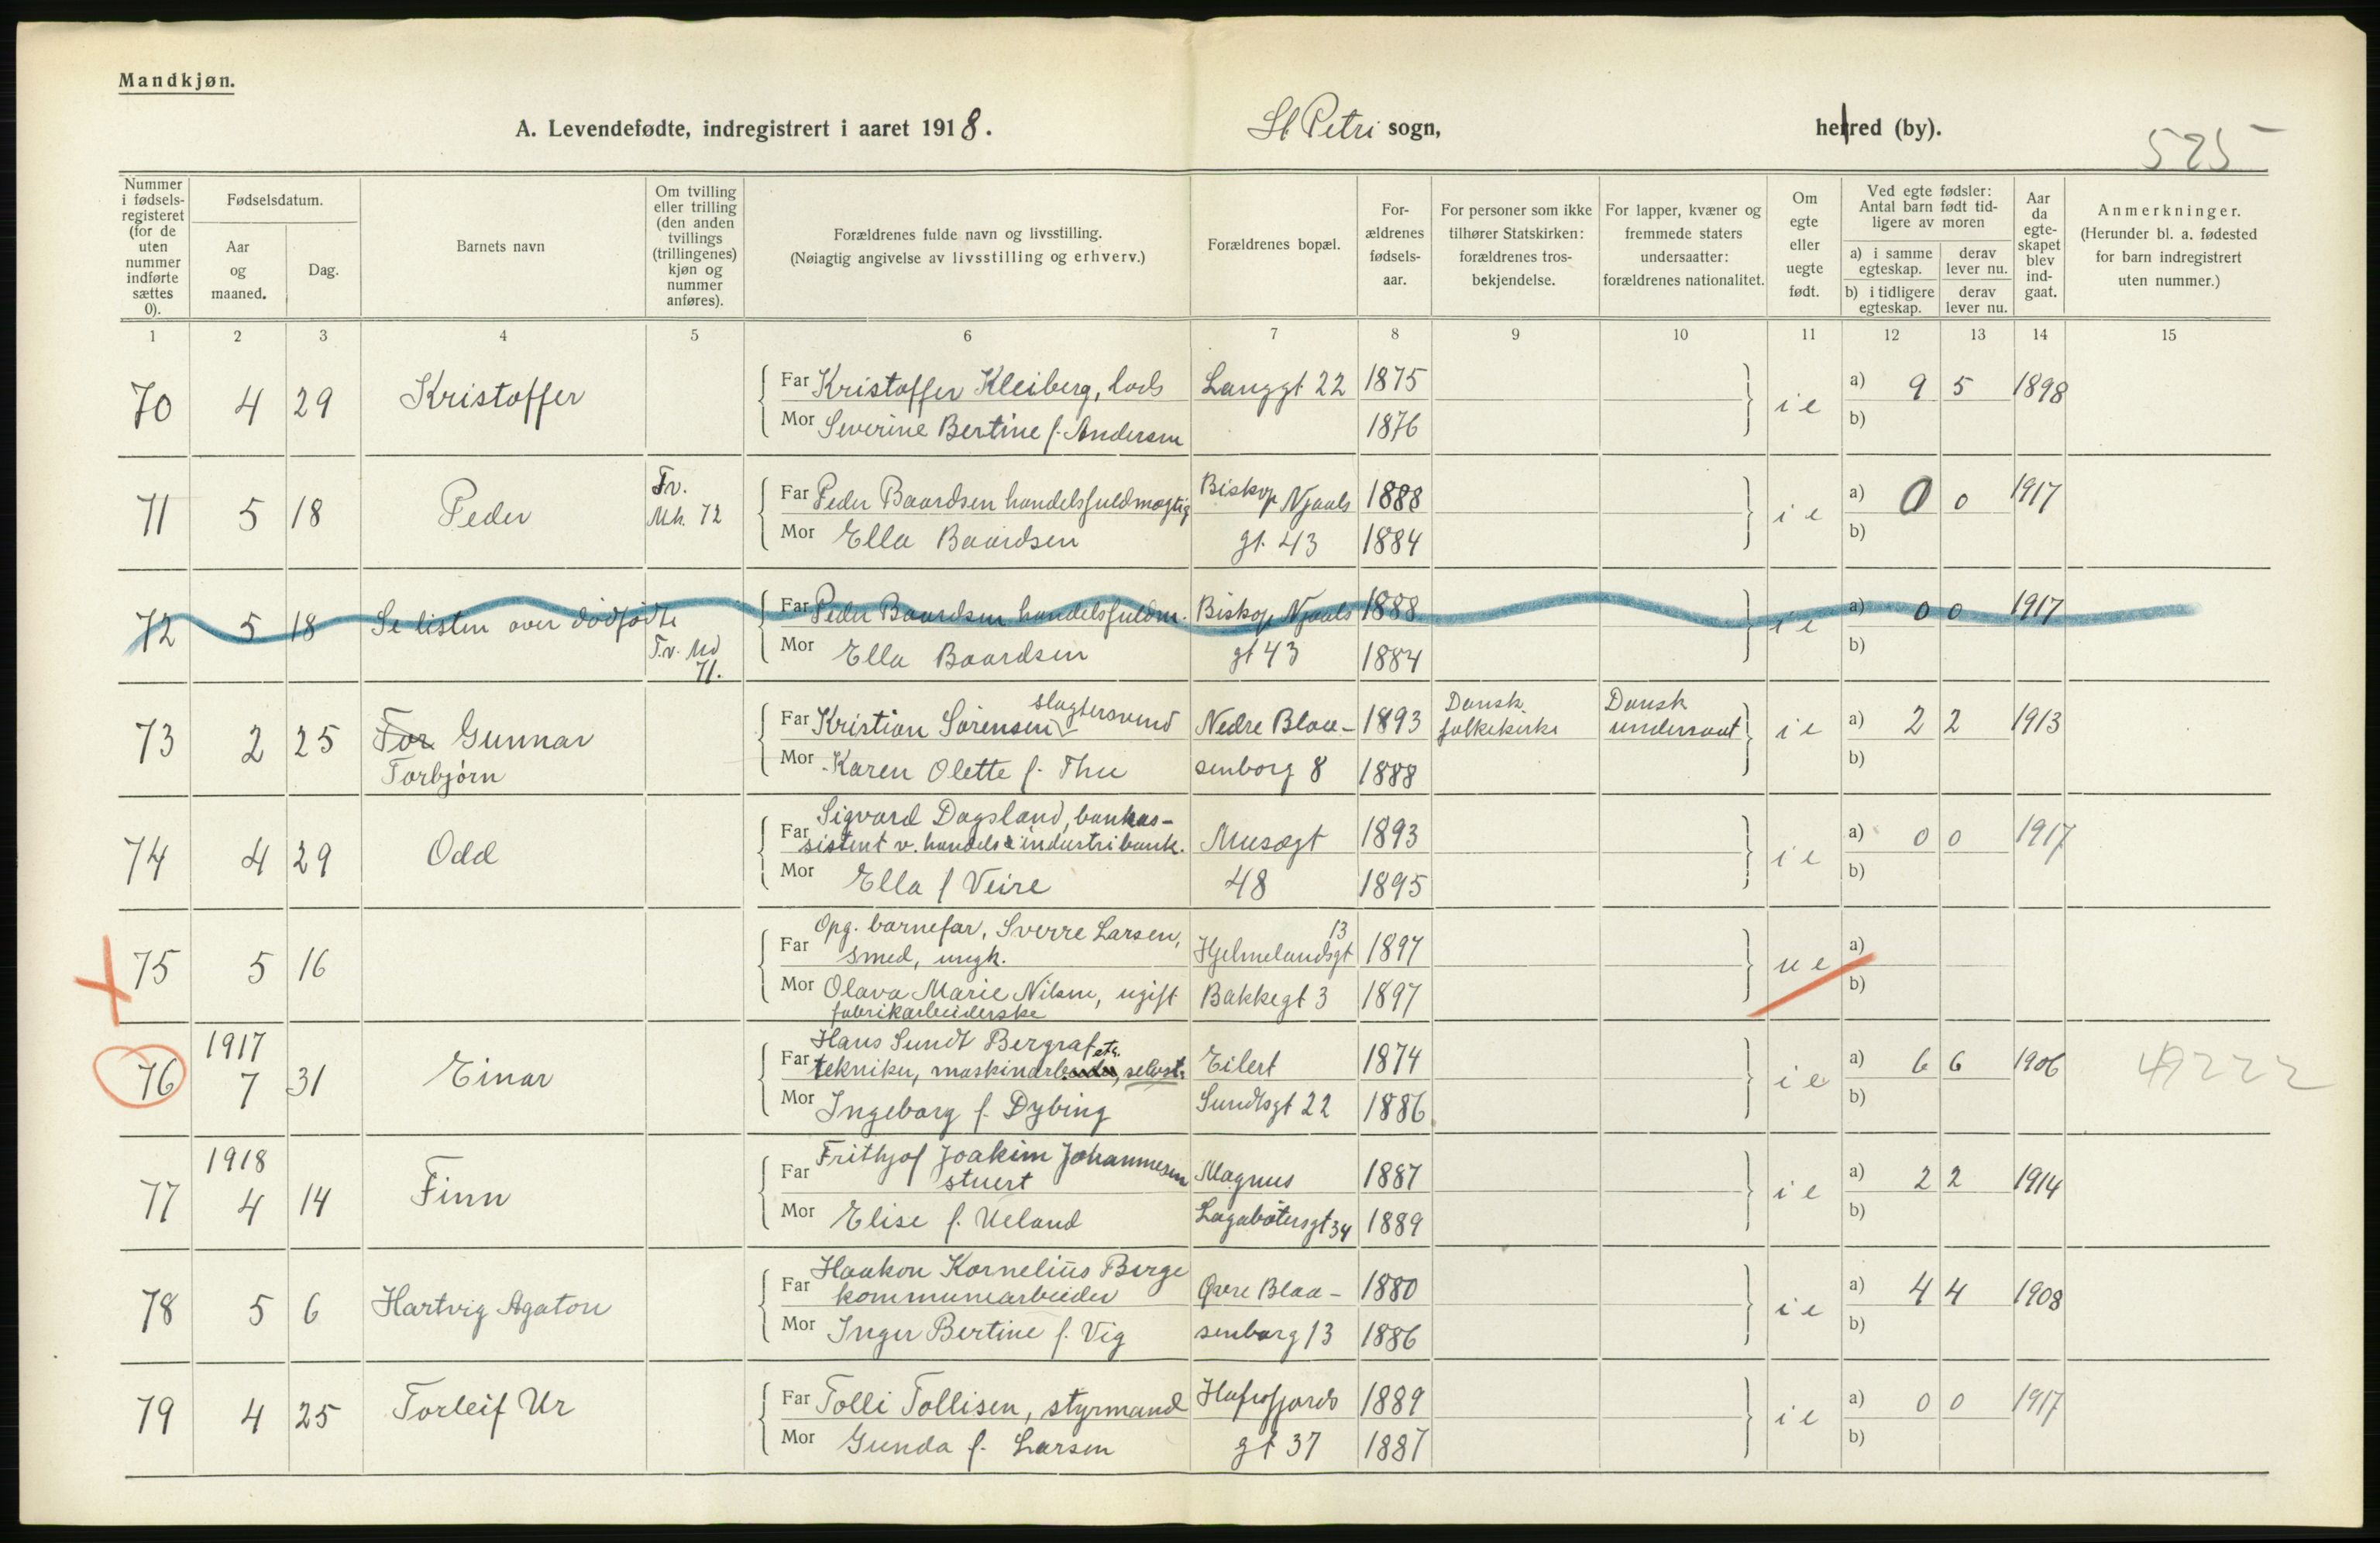 Mandkjøn.
A. Levendefødte, indregistrert i aaret 1918.
St Petri sogn,
herred (by).
525
Nummer i fødsels-registeret (for de uten nummer indførte sættes 0).
Fødselsdatum.
Aar og maaned.
Dag.
Barnets navn
Om tvilling eller trilling (den anden tvillings (trillingenes) kjøn og nummer anføres).
Forældrenes fulde navn og livsstilling.
(Nøiagtig angivelse av livsstilling og erhverv.)
Forældrenes bopæl.
For-ældrenes fødsels-aar.
For personer som ikke tilhører Statskirken: forældrenes tros-bekjendelse.
For lapper, kvæner og fremmede staters undersaatter: forældrenes nationalitet.
Om egte eller uegte født.
Ved egte fødsler: Antal barn født tid-ligere av moren
a) i samme egteskap.
derav lever nu.
b) i tidligere egteskap.
derav lever nu.
Aar da egte-skapet blev ind-gaat.
Anmerkninger.
(Herunder bl. a. fødested for barn indregistrert uten nummer.)
1 2 3 4 5 6 7 8 9 10 11 12 13 14 15
70 4 29 Kristoffer Far Kristoffer Kleiberg, lods Langgt 22 1875 i e a) 9 5 1898
Mor Severine Bertine f. Andersen 1876 b)
71 5 18 Peder Tv. Mk. 72 Far Peder Baardsen handelsfuldmægtig Biskop Njaals 1888 i e a) 0 0 1917
Mor Ella Baardsen gt. 43 1884 b)
72 5 18 Se listen over dødfødte Far Peder Baardsen handelsfuldm. Biskop Njaals 1888 i e a) 0 0 1917
T.v. 71. Mor Ella Baardsen gt 43 1884 b)
73 2 25 Tor Gunnar Far Kristian Sørensen slagtersvend Nedre Blaa- 1893 Dansk folkekirke Dansk undersaat i e a) 2 2 1913
Torbjørn Mor Karen Olette f. Thu senborg 8 1888 b)
74 4 29 Odd Far Sigvard Dagsland, bankas-
sistent v. handels & industribank. Musægt 1893 i e a) 0 0 1917
Mor Ella f Veire 48 1895 b)
75 5 16 Far Opg. barnefar, Sverre Larsen, 13
smed, ungk. Hjelmelandsgt 1897 u e a)
Mor Olava Marie Nilsen, ugift Bakkegt 3 1897 b)
fabrikarbeiderske
1917
76 7 31 Einar Far Hans Sundt Bergraf
tekniker, maskinarb etc. selvst. Eilert 1874 i e a) 6 6 1906
Mor Ingeborg f. Dybing Sundtsgt 22 1886 b)
1918
77 4 14 Finn Far Frithjof Joakim Johannesen
stuert Magnus 1887 i e a) 2 2 1914
Mor Elise f. Ueland Lagabøtersgt 34 1889 b)
78 5 6 Hartvig Agaton Far Haakon Kornelius Berge
kommunearbeider Øvre Blaa- 1880 i e a) 4 4 1908
Mor Inger Bertine f. Vig senborg 13 1886 b)
79 4 25 Torleif Ur Far Tolli Tollisen, styrmand Hafrsfjords 1889 i e a) 0 0 1917
Mor Gunda f. Larsen gt 37 1887 b)